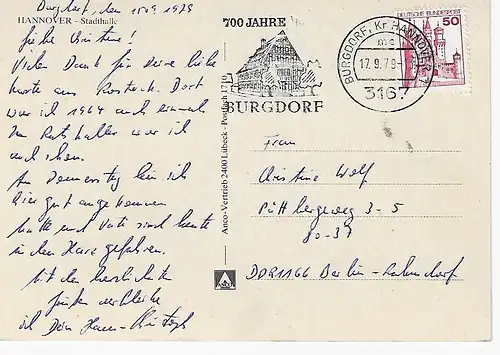 Burgdorf, den 15.9.1979
HANNOVER - Stadthalle
Liebe Christine!
Vielen Dank für Deine liebe
Karte aus Rostock. Dort
war ich 1964 auch einmal.
Im Ratskeller war ich
auch schon.
Am Donnerstag bin ich
hier gut angekommen
Mutti und Vati sind heute
in den Harz gefahren.
Mit den herzlichsten
Grüßen verbleibe
ich Dein Hans-Christoph
Anco-Vertrieb 2400 Lübeck - Postfach 1710
700 JAHRE
BURGDORF
BURGDORF, Kr HANNOVER 1
mc
17.9.79
3167
DEUTSCHE BUNDESPOST
50
Frau
Christine Wolf
Püttbergeweg 3-5
80-37
DDR 1166 Berlin-Rahnsdorf